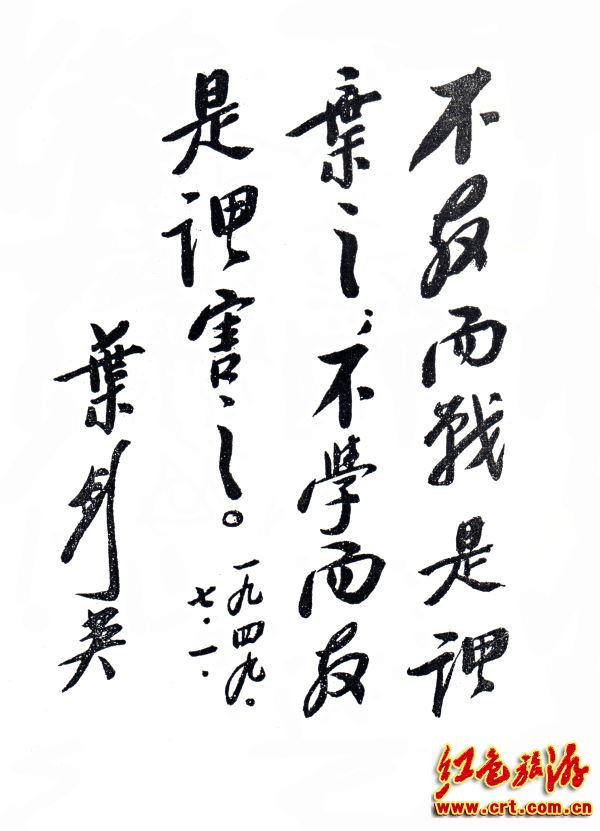 不教而戰是謂
棄之，不學而教
是謂害之。
一九四九.
七.一.
葉劍英
红色旅游
www.crt.com.cn